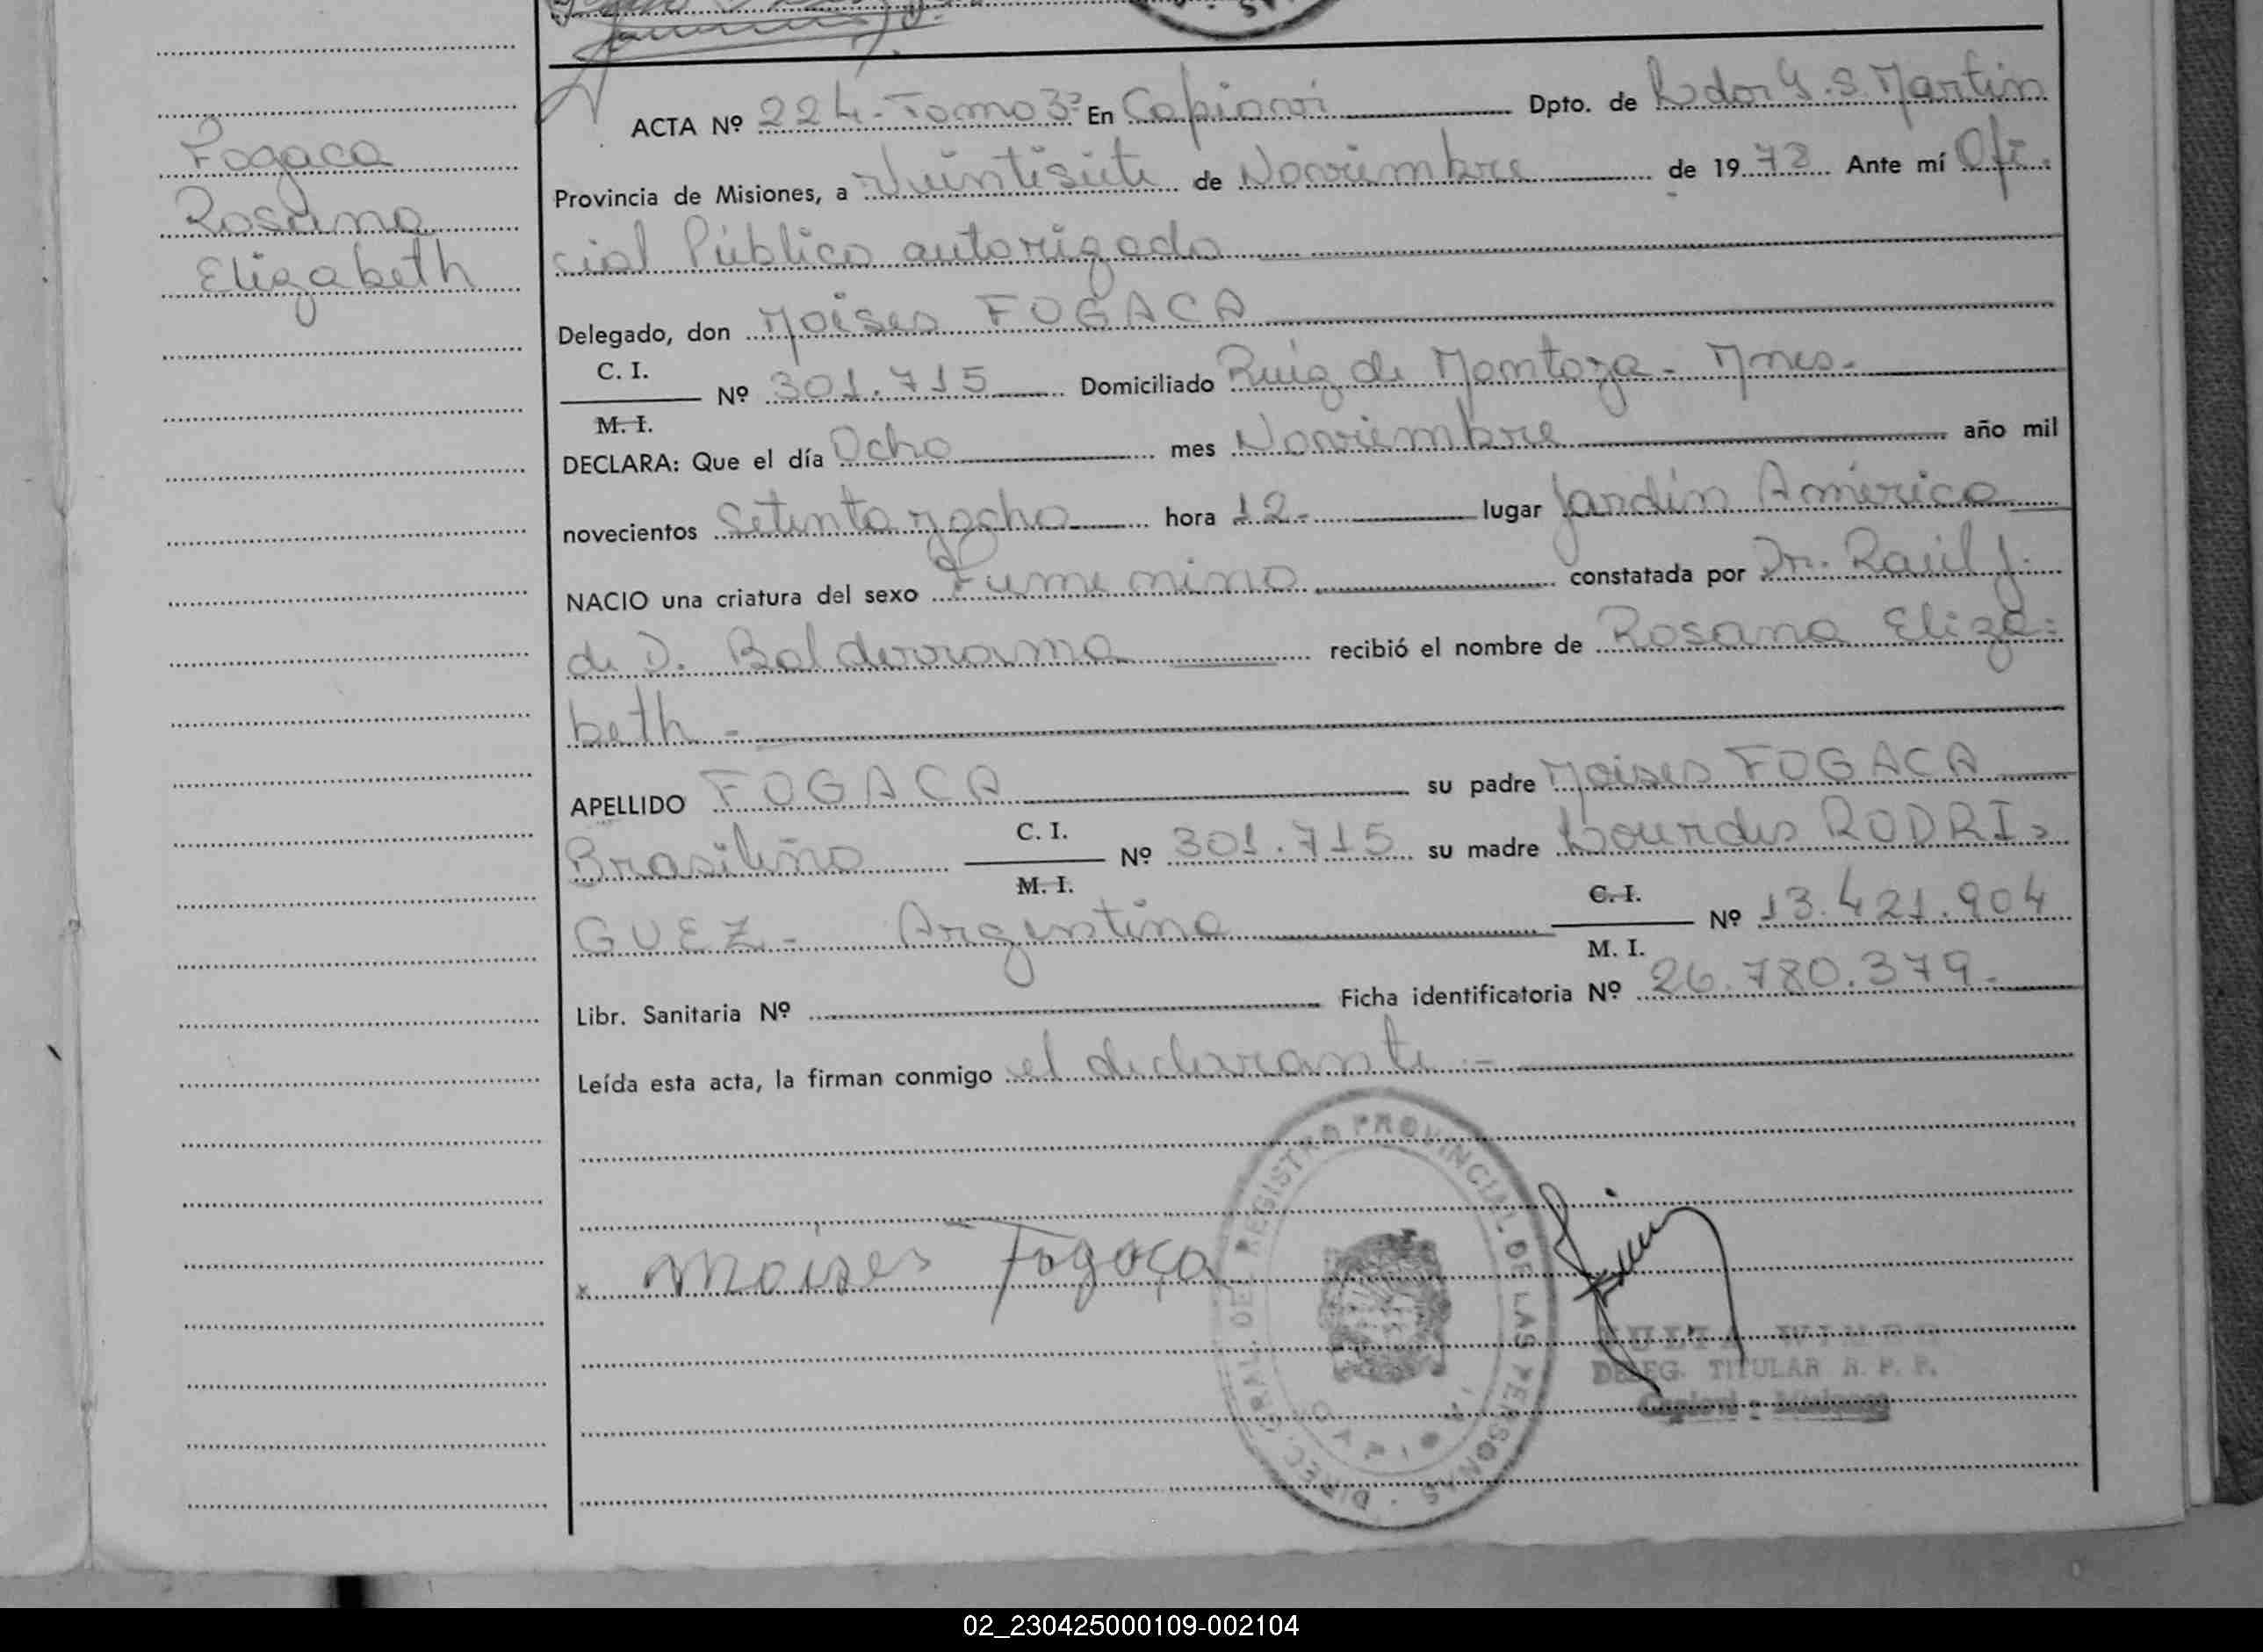 Fogaca
Rosana
Elizabeth
ACTA Nº 224-Tomo 3º En Capioví Dpto. de Ldor G. S. Martín
Provincia de Misiones, a Veintisiete de Noviembre de 1978 Ante mí Ofi-
cial Público autorizado
Delegado, don Moises FOGACA
C. I.
M. I. Nº 301.715 Domiciliado Ruiz de Montoya - Mnes.
DECLARA: Que el día Ocho mes Noviembre año mil
novecientos Setenta y ocho hora 12- lugar Jardín América
NACIO una criatura del sexo Femenino constatada por Dr. Raúl J.
de D. Balderrama recibió el nombre de Rosana Eliza-
beth -
APELLIDO FOGACA su padre Moises FOGACA
Brasileño C. I. M. I. Nº 301.715 su madre Lourdes RODRI-
GUEZ - Argentina C. I. M. I. Nº 13.421.904
Libr. Sanitaria Nº Ficha identificatoria Nº 26.780.379.-
Leída esta acta, la firman conmigo el declarante.-
x Moises Fogaça
DIREC. GRAL. DEL REGISTRO PROVINCIAL DE LAS PERSONAS
DELEG. TITULAR R. P. P.
Capioví - Misiones
02_230425000109-002104